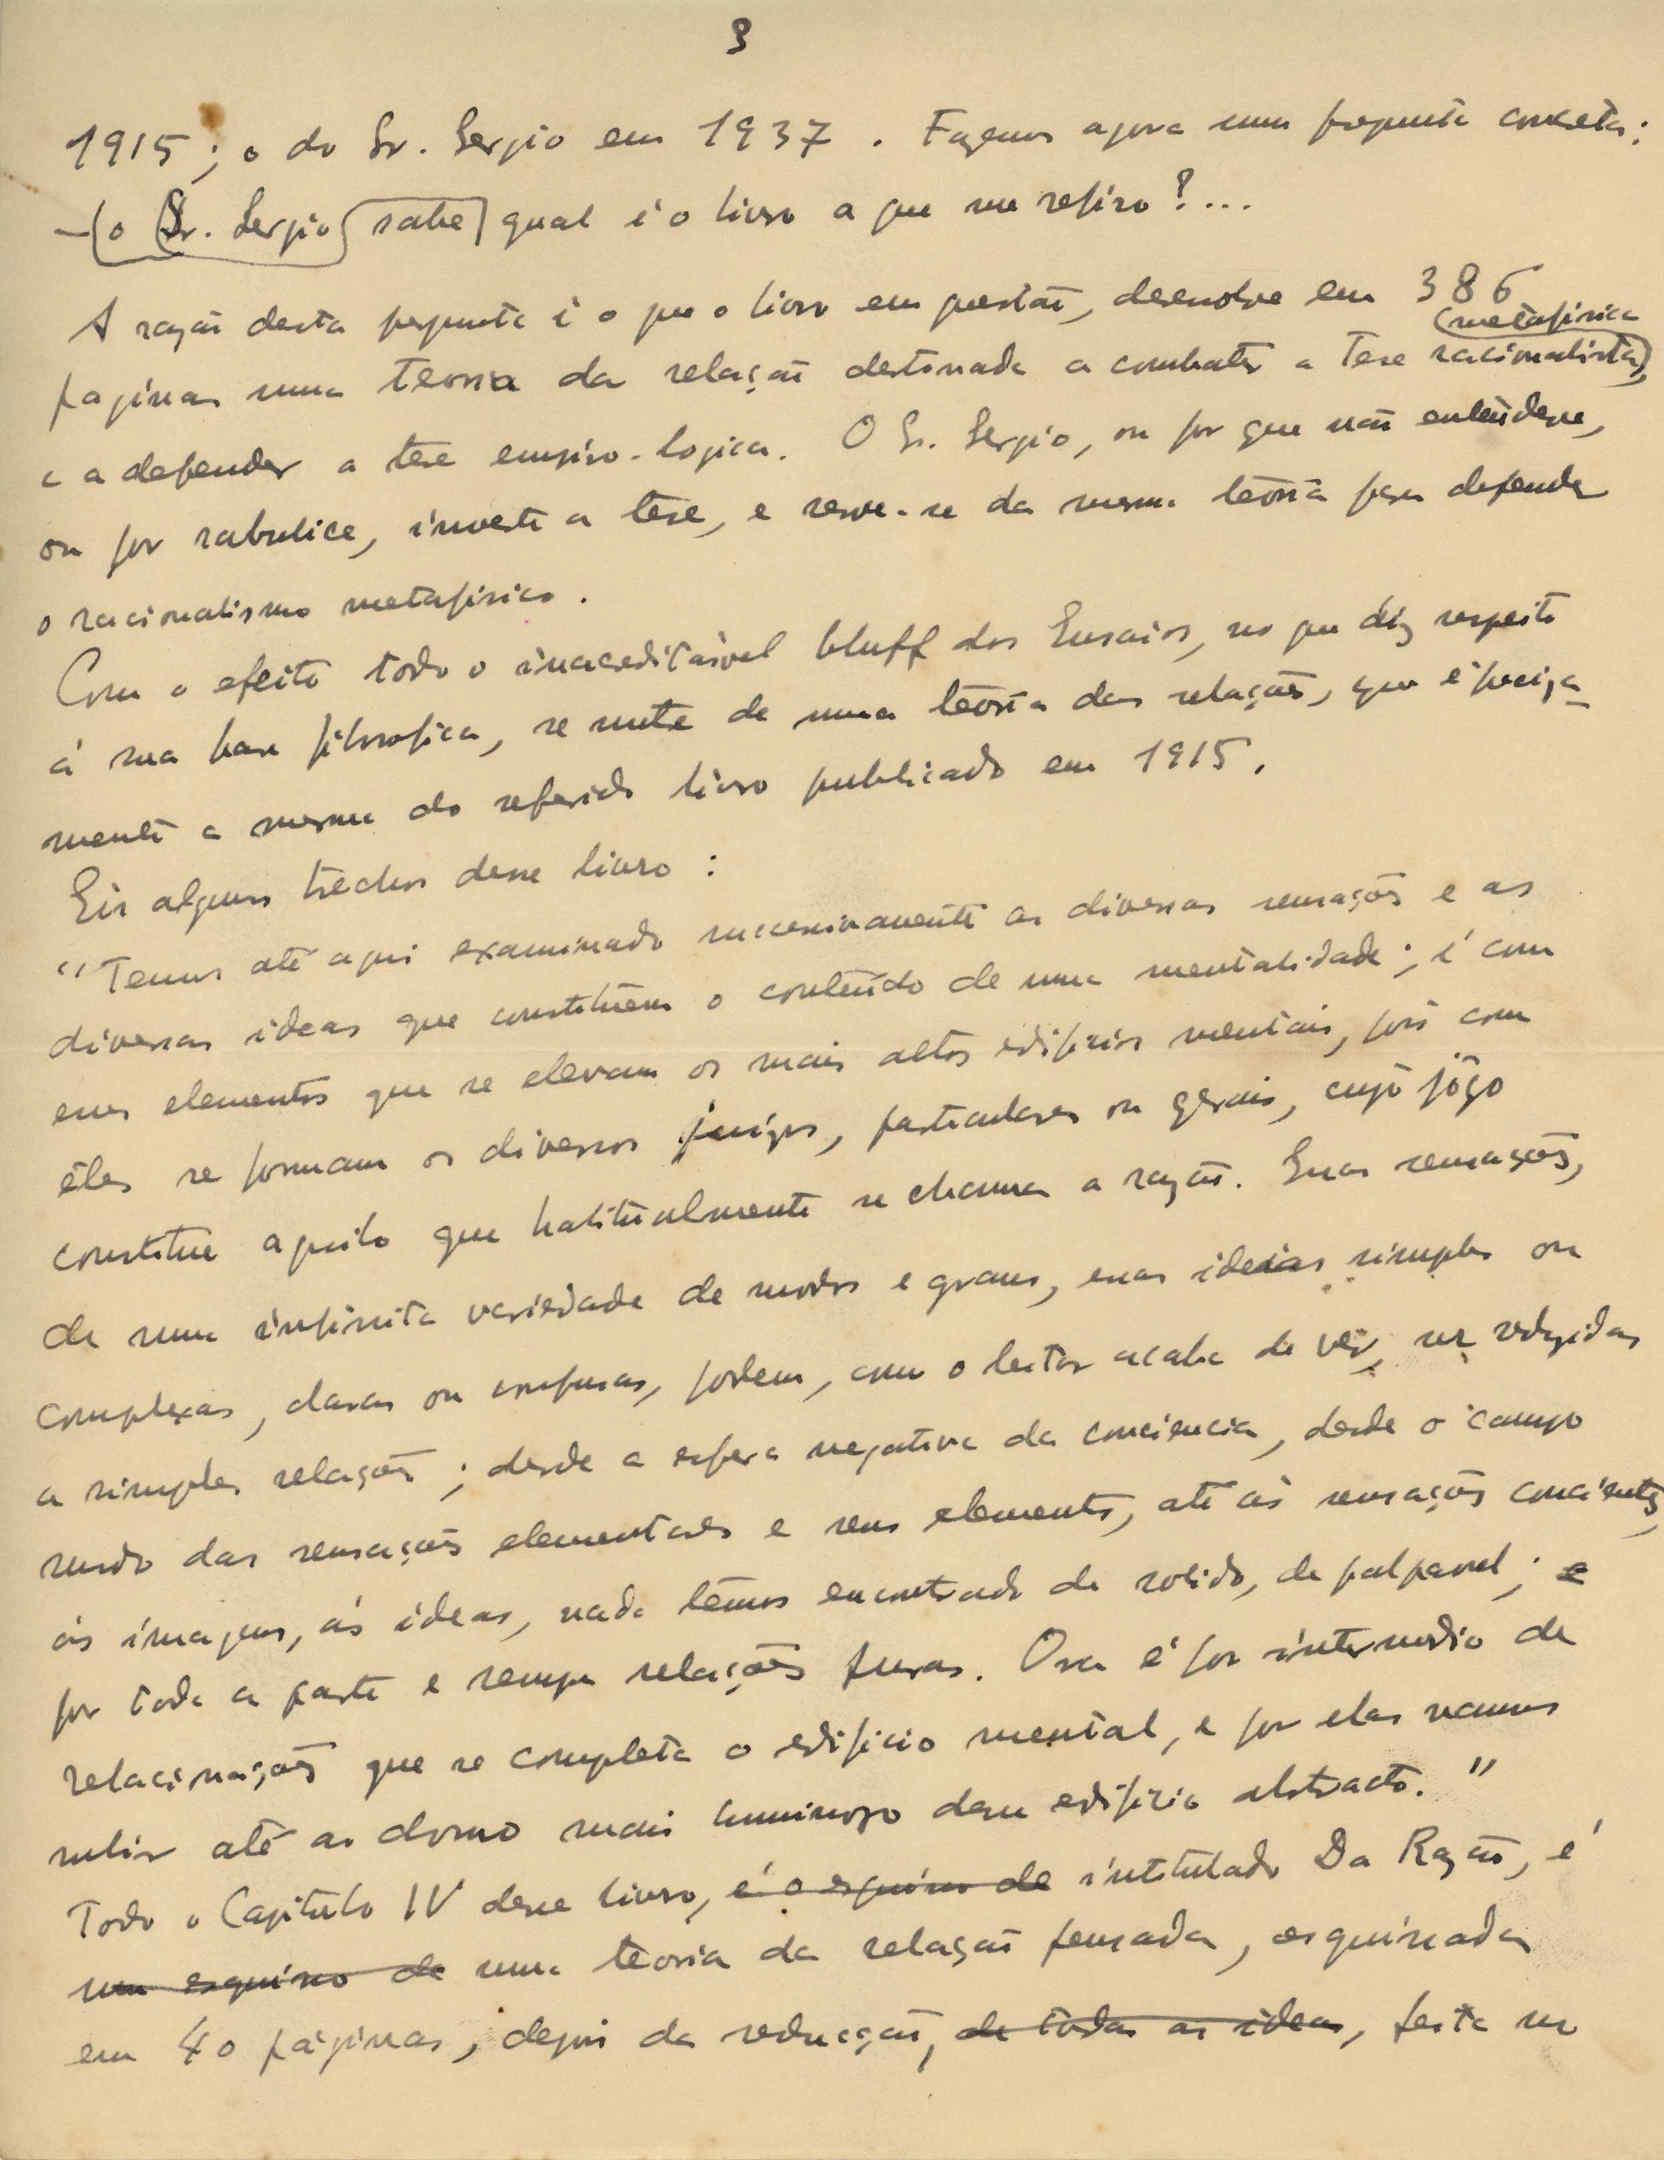 3
1915; o do Sr. Sergio em 1937. Façamos agora uma pergunta concreta:
— o Sr. Sergio sabe qual é o livro a que me refiro?...
A razão desta pergunta é o que o livro em questão, desenvolve em 386
metafisica
paginas uma teoria da relação destinada a combater a tese racionalista,
e a defender a tese empiro-logica. O Sr. Sergio, ou por que não entendesse,
ou por rabulice, inverte a tese, e serve-se da mesma teoria para defender
o racionalismo metafisico.
Com o efeito todo o inacreditável bluff dos Ensaios, no que diz respeito
á sua base filosofica, se nutre de uma teoria das relações, que é preciza-
mente a mesma do referido livro publicado em 1915.
Eis alguns trechos desse livro:
"Temos até aqui examinado sucessivamente as diversas sensações e as
diversas ideas que constituem o conteúdo de uma mentalidade; é com
esses elementos que se elevam os mais altos edificios mentais, pois com
êles se formam os diversos juizos, particulares ou gerais, cujo jôgo
constitue aquilo que habitualmente se chama a razão. Essas sensações,
de uma infinita variedade de modos e graus, essas ideias simples ou
complexas, claras ou confusas, podem, como o leitor acaba de vêr, ser reduzidas
a simples relações; desde a esfera negativa da conciencia, desde o campo
surdo das sensações elementares e seus elementos, até ás sensações concientes,
ás imagens, ás ideas, nada têmos encontrado de solido, de palpavel; e
por toda a parte e sempre relações puras. Ora é por intermedio de
relacionações que se completa o edificio mental, e por elas vamos
subir até ao domo mais luminoso desse edificio abstracto."
Todo o Capitulo IV desse livro, é o esquisso de intitulado Da Razão, é
um esquisso de uma teoria da relação pensada, esquissada
em 40 páginas, depois da reducção, de todas as ideas, feita no